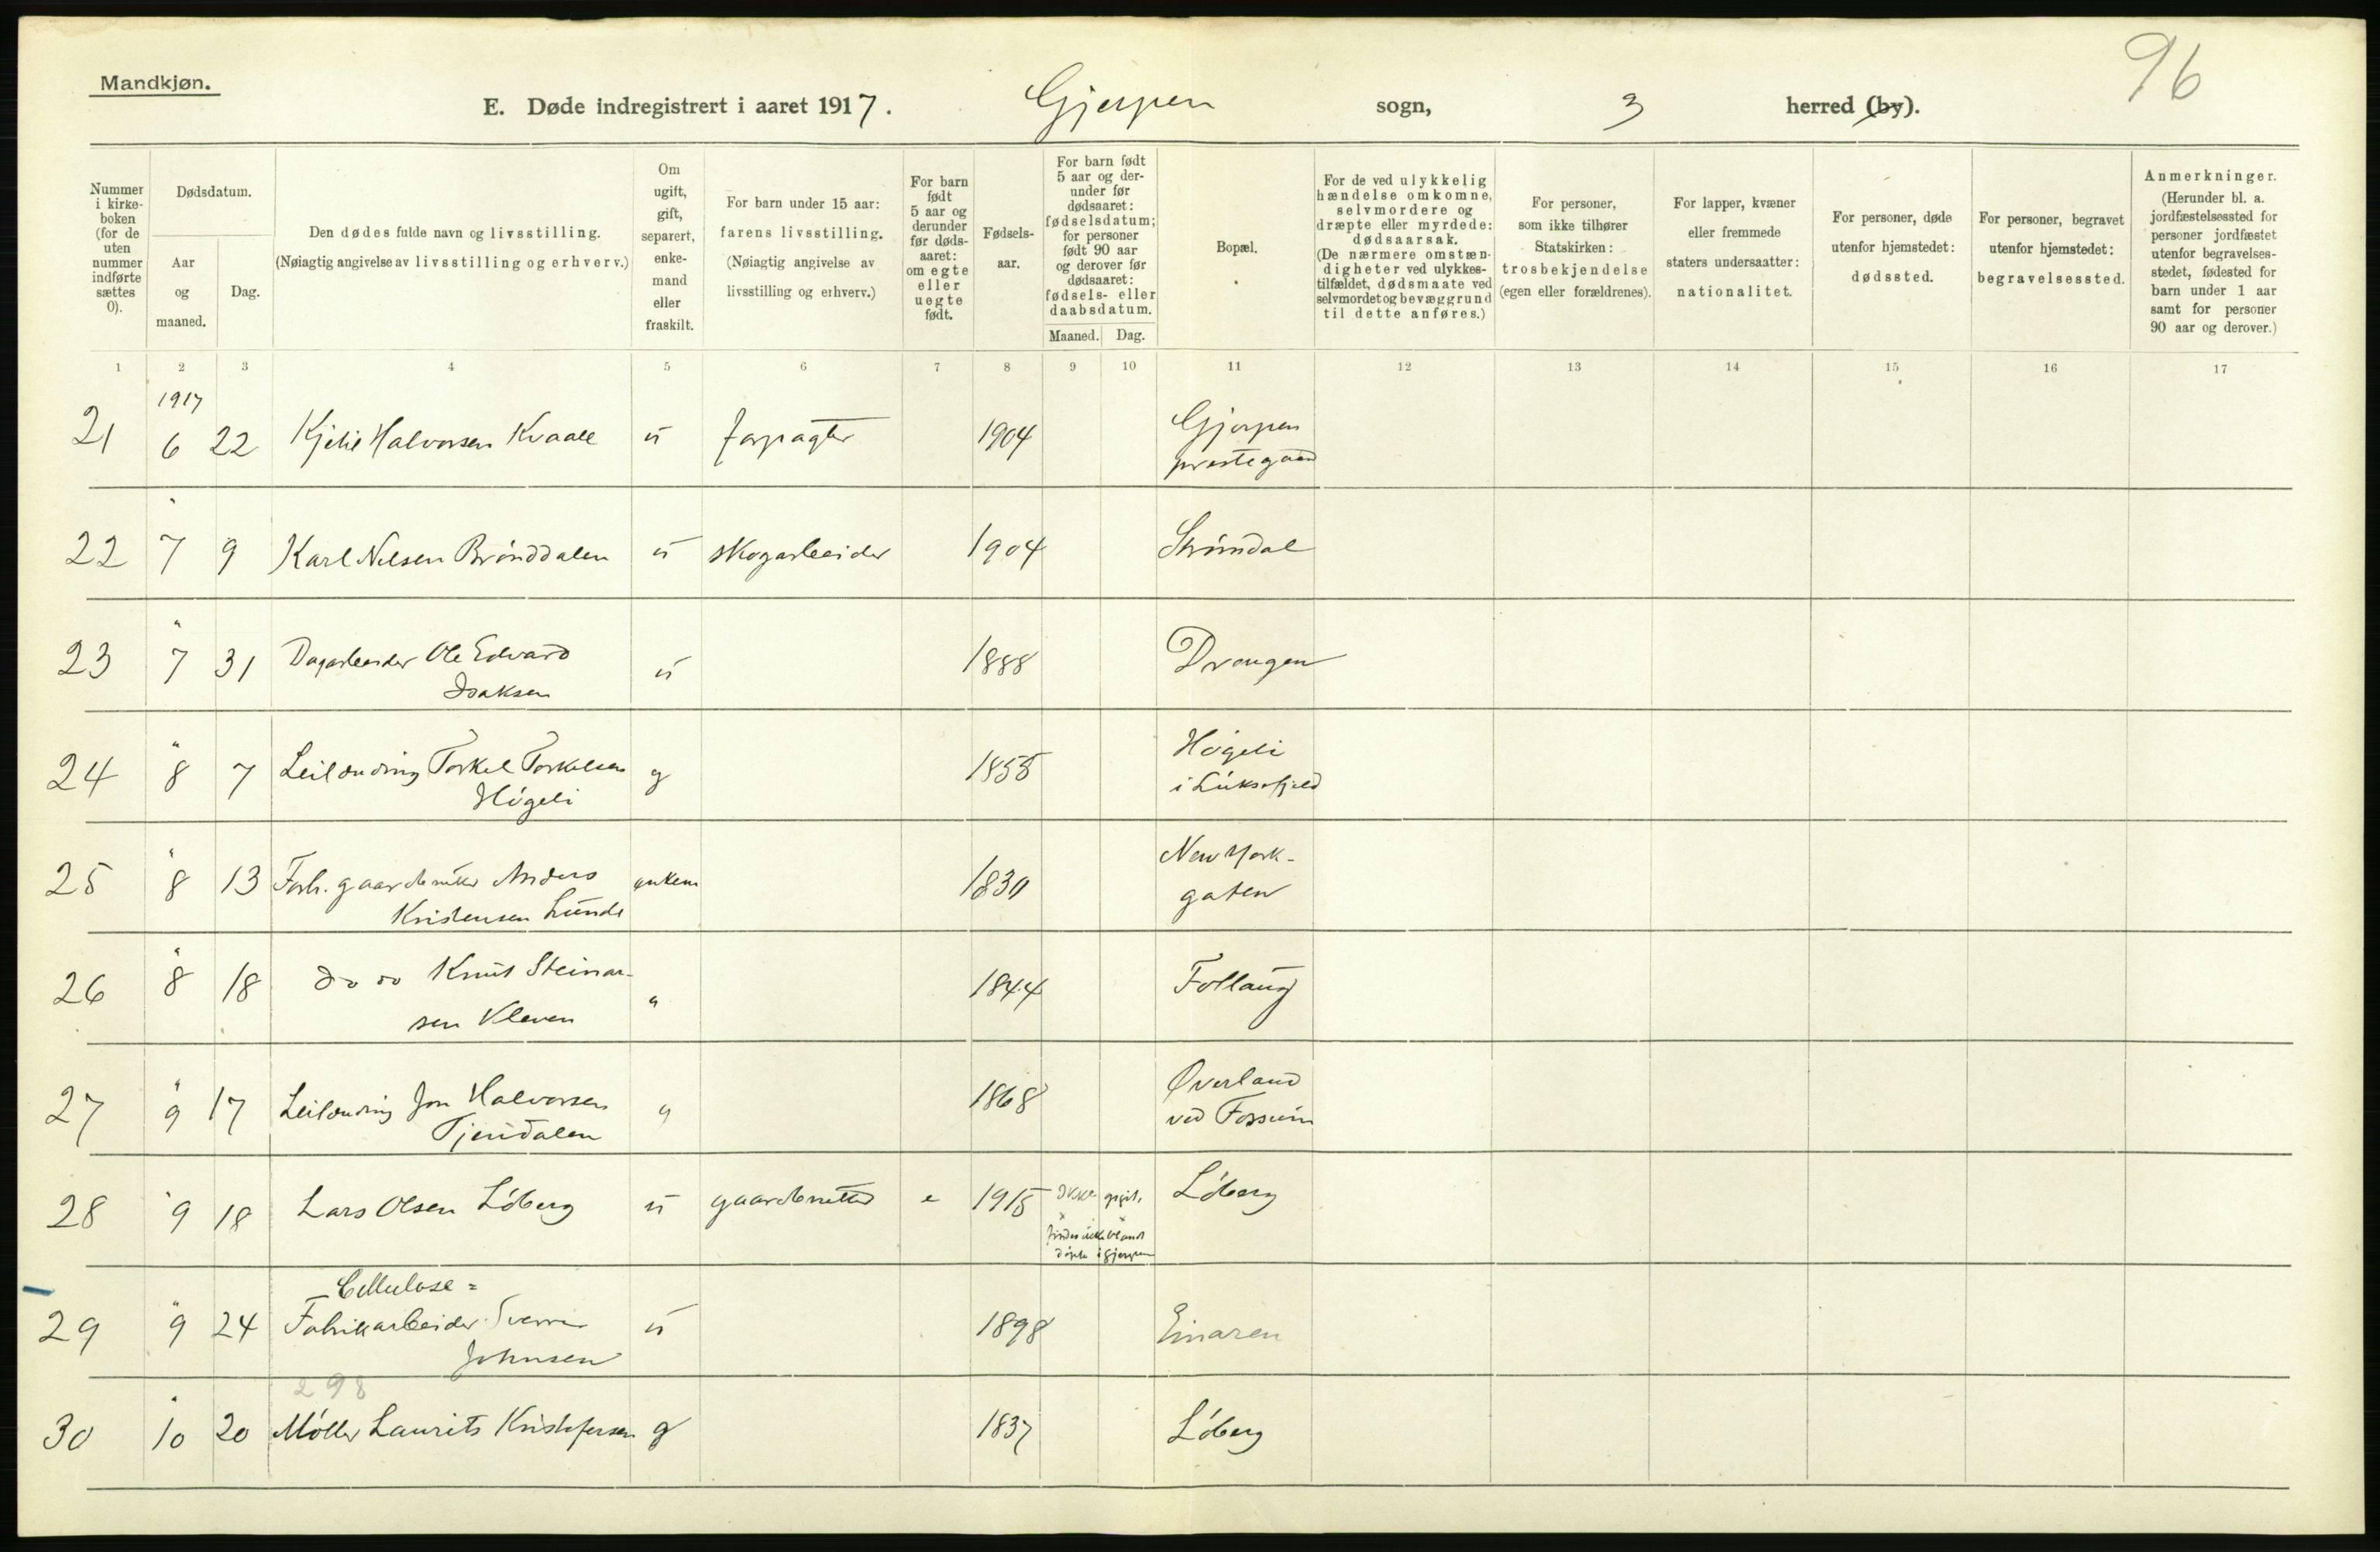 96
Mandkjøn.
E. Døde indregistrert i aaret 1917. Gjerpen sogn, 3 herred (by).
Nummer i kirke- boken (for de uten nummer indførte sættes 0).
Dødsdatum.
Aar og maaned.
Dag.
Den dødes fulde navn og livsstilling.
(Nøiagtig angivelse av livsstilling og erhverv.)
Om ugift, gift, separert, enke- mand eller fraskilt.
For barn under 15 aar: farens livsstilling. (Nøiagtig angivelse av livsstilling og erhverv.)
For barn født 5 aar og derunder før døds- aaret: om egte eller uegte født.
Fødsels- aar.
For barn født 5 aar og der- under før dødsaaret: fødselsdatum; for personer født 90 aar og derover før dødsaaret: fødsels- eller daabsdatum.
Maaned. Dag.
Bopæl.
For de ved ulykkelig hændelse omkomne, selvmordere og dræpte eller myrdede: dødsaarsak. (De nærmere omstæn- digheter ved ulykkes- tilfældet, dødsmaate ved selvmordet og bevæggrund til dette anføres.)
For personer, som ikke tilhører Statskirken: trosbekjendelse (egen eller forældrenes).
For lapper, kvæner eller fremmede staters undersaatter: nationalitet.
For personer, døde utenfor hjemstedet: dødssted.
For personer, begravet utenfor hjemstedet: begravelsessted.
Anmerkninger. (Herunder bl. a. jordfæstelsessted for personer jordfæstet utenfor begravelses- stedet, fødested for barn under 1 aar samt for personer 90 aar og derover.)
1 2 3 4 5 6 7 8 9 10 11 12 13 14 15 16 17
1917
21 6 22 Kjetil Halvorsen Kvaale ü forpagter 1904 Gjerpen
prestegaard
22 " 7 9 Karl Nilsen Brønddalen ü skogarbeider 1904 Strømdal
23 " 7 31 Dagarbeider Ole Edvard ü 1888 Drangen
Isaksen
24 " 8 7 Leilænding Torkel Torkelsen g 1855 Høgeli
Høgeli i Luksefjeld
25 " 8 13 Forh. gaardbruker Anders enkem 1830 New York-
Kristensen Lunde gaten
26 " 8 18 do do Knut Steinar- " 1844 Follaug
sen Kleven
27 " 9 17 Leilænding Jon Halvorsen g 1868 Øverland
Tjendalen ved Fossum
28 " 9 18 Lars Olsen Løberg ü gaardbruker e 1915 Ikke opgit. Løberg
× findes ikke blandt
døpte i Gjerpen
Cellulose=
29 " 9 24 Fabrikarbeider Sverre ü 1898 Einaren
Johnsen
298
30 " 10 20 Møller Laurits Kristofersen g 1837 Løberg